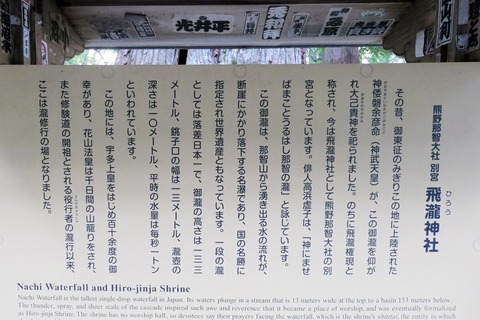 光井平
熊野那智大社 別宮 飛瀧神社
ひろう
その昔、御東征のみぎりこの地に上陸された
神倭磐余彦命（神武天皇）が、この御瀧を仰が
れ大己貴神を祀られました。のちに飛瀧権現と
称され、今は飛瀧神社として熊野那智大社の別
宮となっています。俳人高浜虚子は、「神にませ
ばまことうるはし那智の瀧」と詠じています。
この御瀧は、那智山から湧き出る水の流れが、
断崖にかかり落下する名瀑であり、国の名勝に
指定され世界遺産ともなっています。一段の瀧
としては落差日本一で、御瀧の高さは一三三
メートル、銚子口の幅は一三メートル、瀧壺の
深さは一〇メートル、平時の水量は毎秒一トン
といわれています。
この地には、宇多上皇をはじめ百十余度の御
幸があり、花山法皇は千日間の山籠りをされ、
また修験道の開祖とされる役行者の瀧行以来、
ここは瀧修行の場となりました。
Nachi Waterfall and Hiro-jinja Shrine
Nachi Waterfall is the tallest single-drop waterfall in Japan. Its waters plunge in a stream that is 13 meters wide at the top to a basin 133 meters below.
The thunder, spray, and sheer scale of the cascade inspired such awe and reverence that it became a place of worship, and was eventually formalized
as Hiro-jinja Shrine. The shrine has no worship hall, so devotees say their prayers facing the waterfall, which is the shrine's shintai, the entity in which